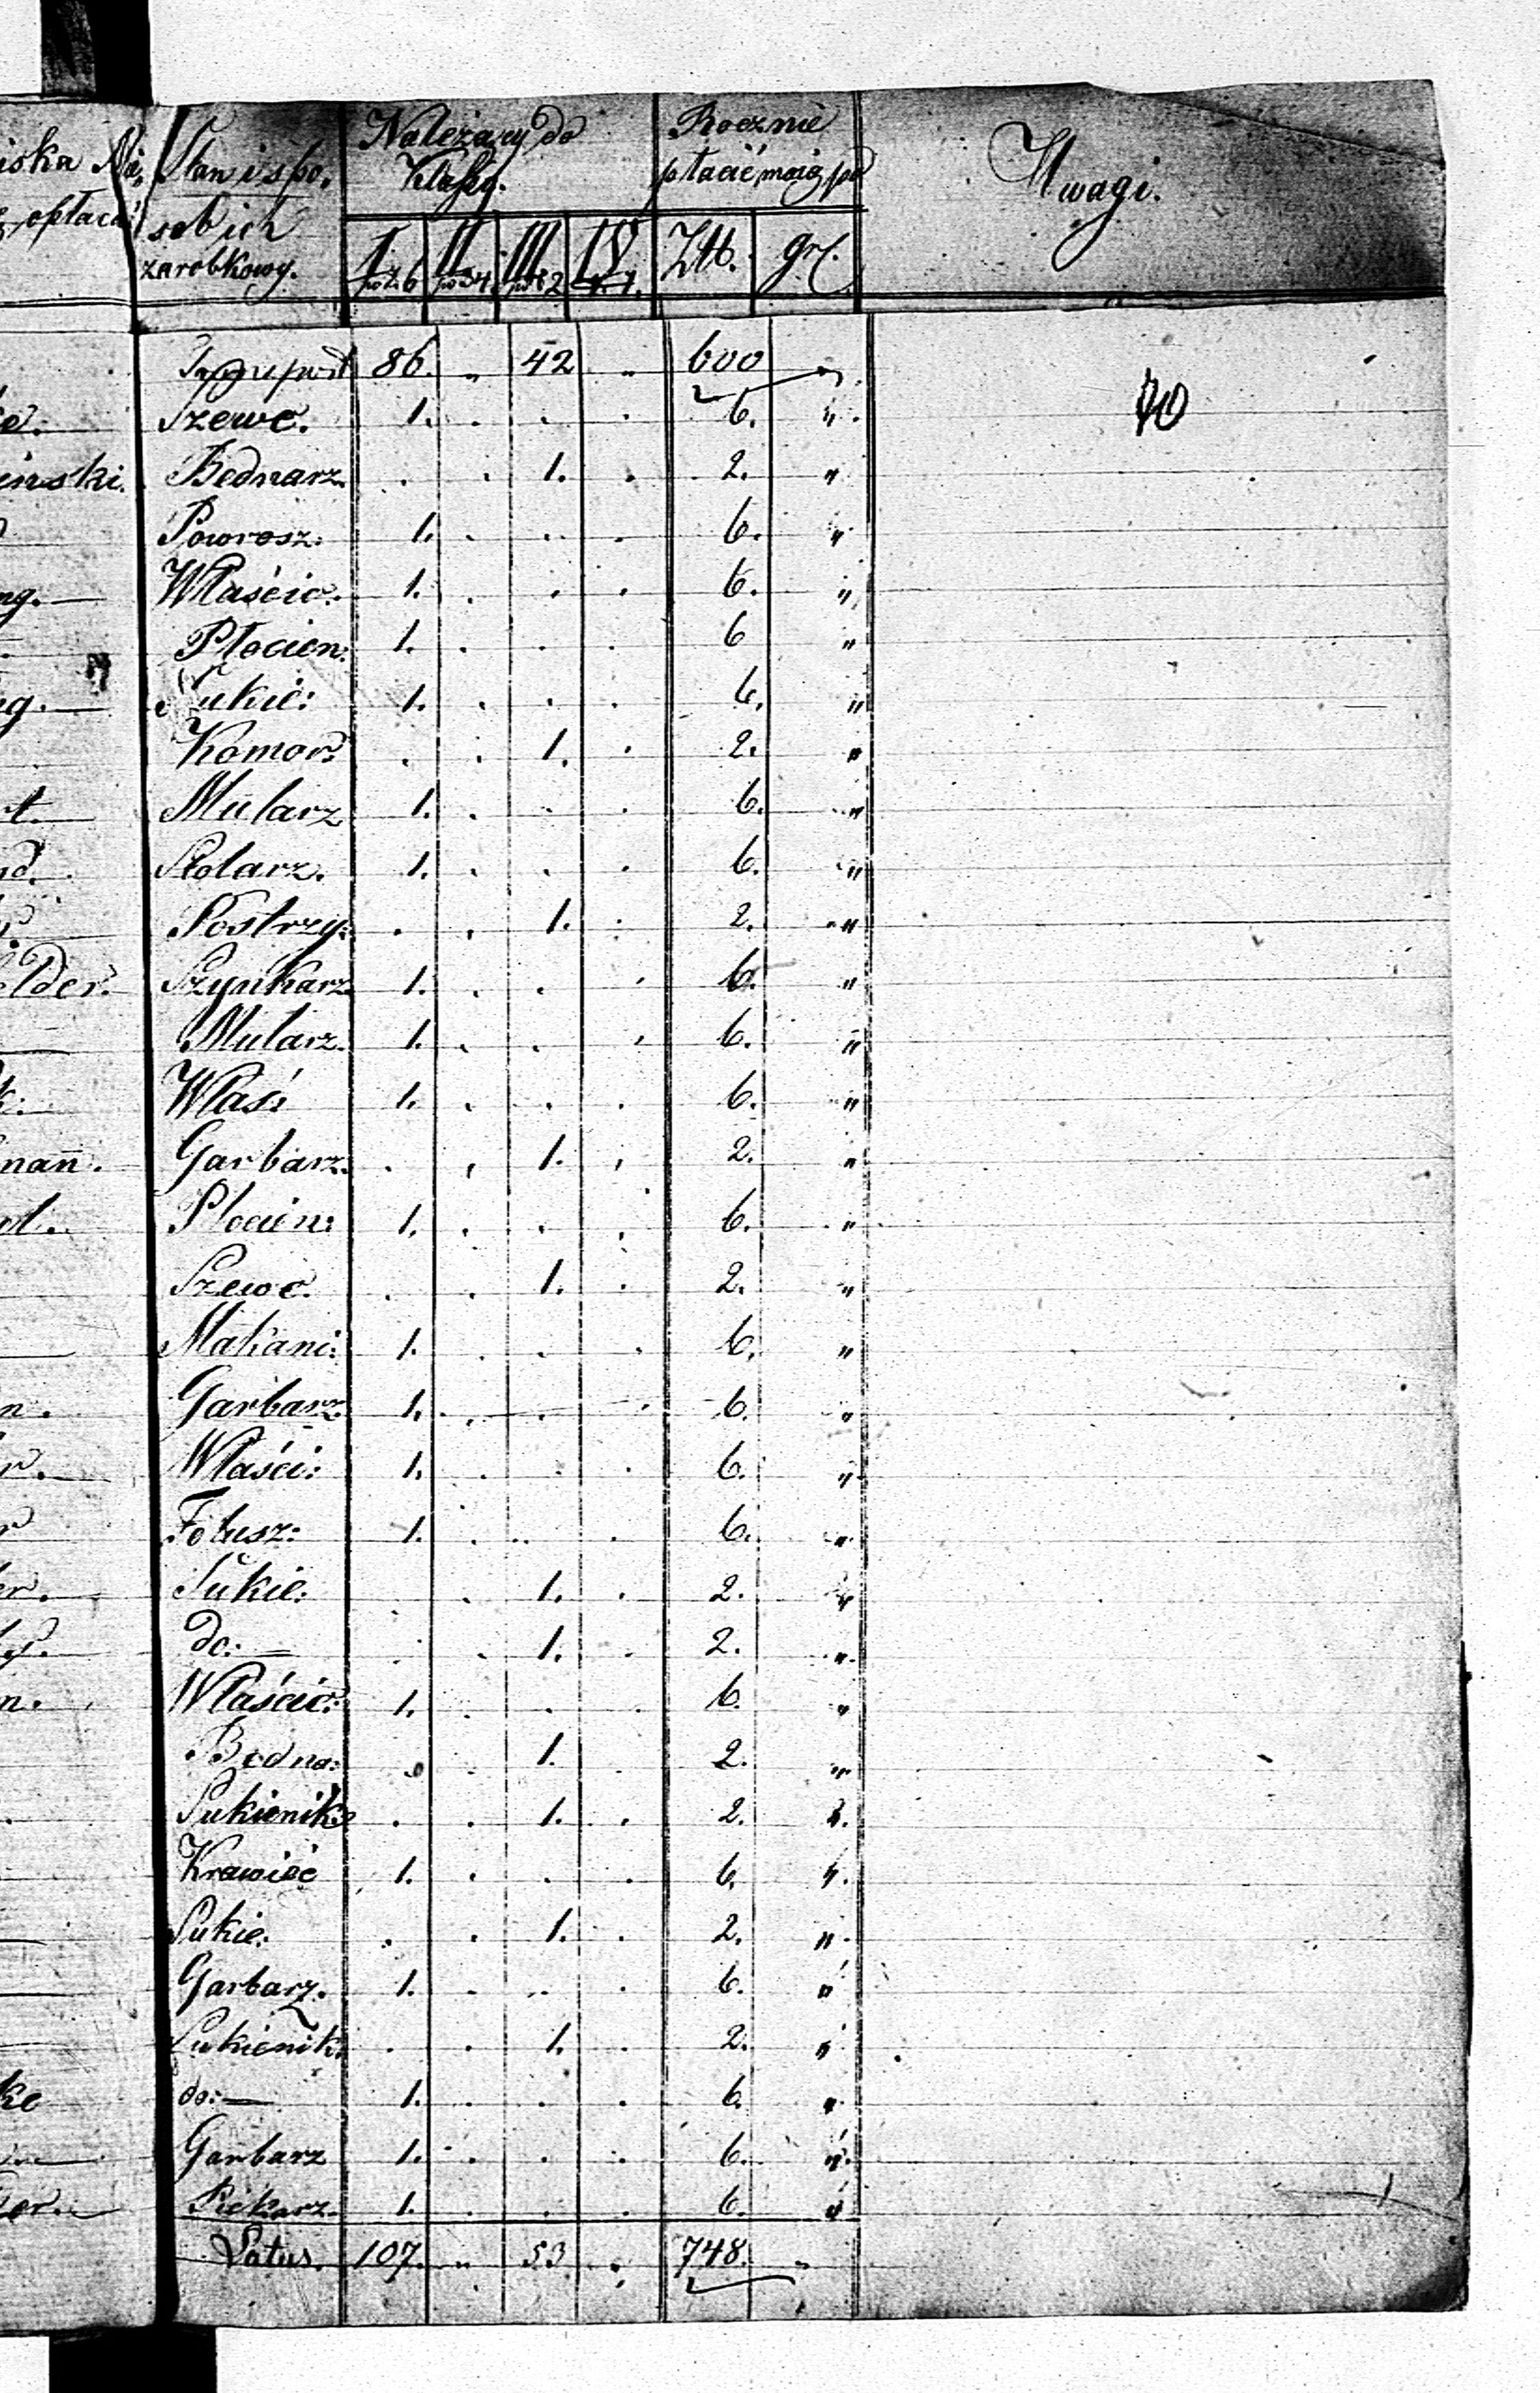 iska Na, Stan i spo, Należący do Rocznie Uwagi.
opłaca sob ich Klassy. płacić maią po
zarobkowy. I po z. 6 II po z 4. III po z 2 IV Złt. gr.
Transport 86. " 42 " 600 "
Szewc. 1. . . . 6. " 70
inski. Bednarz. . . 1. . 2. "
Powrosz: 1. . . . 6. "
ng. Właścic: 1. . . . 6. "
Płocien: 1. . . . 6 "
g. Sukie: 1. . . . 6. "
Komor: . . 1. . 2. "
t. Mularz 1. . . . 6. "
d. Stolarz. 1. . . . 6. "
Postrzy: . . 1. . 2. "
elder. Szynkarz 1. . . . 6. "
Mularz. 1. . . . 6. "
k: Właś: 1. . . . 6. "
mañ. Garbarz. . . 1. . 2. "
ol. Plocien: 1. . . . 6. "
Szewc. . . 1. . 2. "
Makani: 1. . . . 6. "
n. Garbarz. 1. . . . 6. "
r. Właści: 1. . . . 6. "
r Folusz: 1. . . . 6. "
er. Sukie: . . 1. . 2. "
do: — . . 1. . 2. "
n. Właścic: 1. . . . 6. "
Bedna: . . 1. . 2. "
Sukienik: . . 1. . 2. "
Krawiec 1. . . . 6. "
Sukie: . . 1. . 2. "
Garbarz. 1. . . . 6. "
Sukienik. . . 1. . 2. "
ke do: — 1. . . . 6. "
Garbarz 1. . . . 6. "
er. Piekarz. 1. . . . 6. "
Latus. 107. " 53 " 748. "